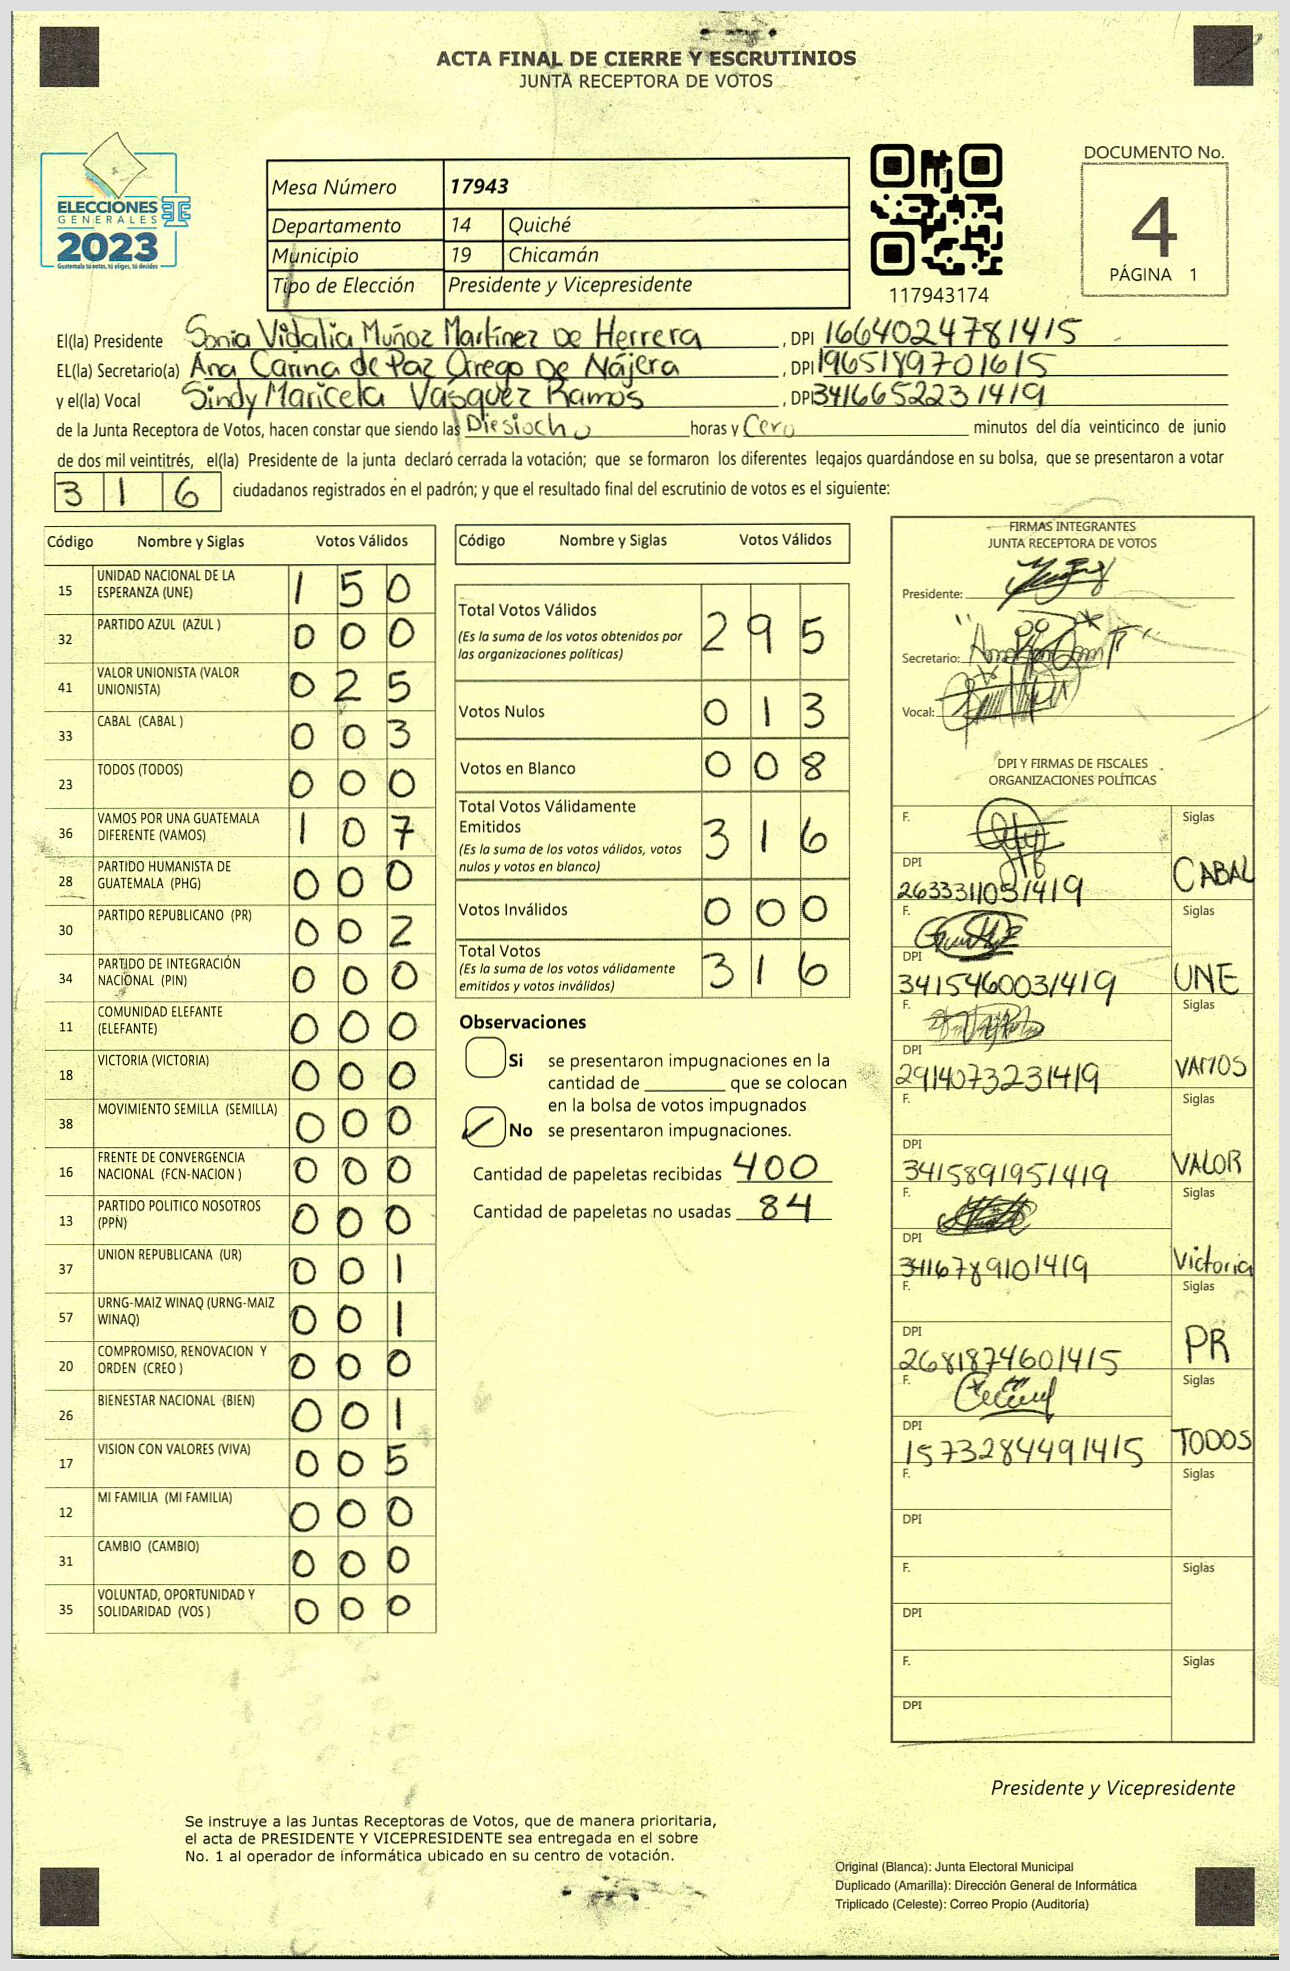 ACTA FINAL DE CIERRE Y ESCRUTINIOS
JUNTA RECEPTORA DE VOTOS
ELECCIONES
GENERALES
2023
Guatemala tu votas, tú eliges, tú decides
Mesa Número 17943
Departamento 14 Quiché
Municipio 19 Chicamán
Tipo de Elección Presidente y Vicepresidente
117943174
DOCUMENTO No.
4
PÁGINA 1
El(la) Presidente Sonia Vidalia Muñoz Martínez De Herrera, DPI 1664024781415
EL(la) Secretario(a) Ana Carina de Paz Orrego De Nájera, DPI 1965189701615
y el(la) Vocal Sindy Maricela Vásquez Ramos, DPI 3416652231419
de la Junta Receptora de Votos, hacen constar que siendo las Diesiocho horas y Cero minutos del día veinticinco de junio
de dos mil veintitrés, el(la) Presidente de la junta declaró cerrada la votación; que se formaron los diferentes legajos guardándose en su bolsa, que se presentaron a votar
3 1 6 ciudadanos registrados en el padrón; y que el resultado final del escrutinio de votos es el siguiente:
Código Nombre y Siglas Votos Válidos
15 UNIDAD NACIONAL DE LA ESPERANZA (UNE) 1 5 0
32 PARTIDO AZUL (AZUL ) 0 0 0
41 VALOR UNIONISTA (VALOR UNIONISTA) 0 2 5
33 CABAL (CABAL ) 0 0 3
23 TODOS (TODOS) 0 0 0
36 VAMOS POR UNA GUATEMALA DIFERENTE (VAMOS) 1 0 7
28 PARTIDO HUMANISTA DE GUATEMALA (PHG) 0 0 0
30 PARTIDO REPUBLICANO (PR) 0 0 2
34 PARTIDO DE INTEGRACIÓN NACIONAL (PIN) 0 0 0
11 COMUNIDAD ELEFANTE (ELEFANTE) 0 0 0
18 VICTORIA (VICTORIA) 0 0 0
38 MOVIMIENTO SEMILLA (SEMILLA) 0 0 0
16 FRENTE DE CONVERGENCIA NACIONAL (FCN-NACION ) 0 0 0
13 PARTIDO POLITICO NOSOTROS (PPN) 0 0 0
37 UNION REPUBLICANA (UR) 0 0 1
57 URNG-MAIZ WINAQ (URNG-MAIZ WINAQ) 0 0 1
20 COMPROMISO, RENOVACION Y ORDEN (CREO ) 0 0 0
26 BIENESTAR NACIONAL (BIEN) 0 0 1
17 VISION CON VALORES (VIVA) 0 0 5
12 MI FAMILIA (MI FAMILIA) 0 0 0
31 CAMBIO (CAMBIO) 0 0 0
35 VOLUNTAD, OPORTUNIDAD Y SOLIDARIDAD (VOS ) 0 0 0
Código Nombre y Siglas Votos Válidos
Total Votos Válidos 2 9 5
(Es la suma de los votos obtenidos por
las organizaciones políticas)
Votos Nulos 0 1 3
Votos en Blanco 0 0 8
Total Votos Válidamente
Emitidos 3 1 6
(Es la suma de los votos válidos, votos
nulos y votos en blanco)
Votos Inválidos 0 0 0
Total Votos 3 1 6
(Es la suma de los votos válidamente
emitidos y votos inválidos)
Observaciones
Si se presentaron impugnaciones en la
cantidad de ________ que se colocan
en la bolsa de votos impugnados
No se presentaron impugnaciones.
Cantidad de papeletas recibidas 400
Cantidad de papeletas no usadas 84
FIRMAS INTEGRANTES
JUNTA RECEPTORA DE VOTOS
Presidente:
Secretario:
Vocal:
DPI Y FIRMAS DE FISCALES
ORGANIZACIONES POLÍTICAS
F. Siglas
DPI 2633311051419 CABAL
F. Siglas
DPI 3415460031419 UNE
F. Siglas
DPI 2914073231419 VAMOS
F. Siglas
DPI 3415891951419 VALOR
F. Siglas
DPI 3416789101419 Victoria
F. Siglas
DPI 2681874601415 PR
F. Siglas
DPI 1573284491415 TODOS
F. Siglas
DPI
F. Siglas
DPI
F. Siglas
DPI
Presidente y Vicepresidente
Se instruye a las Juntas Receptoras de Votos, que de manera prioritaria,
el acta de PRESIDENTE Y VICEPRESIDENTE sea entregada en el sobre
No. 1 al operador de informática ubicado en su centro de votación.
Original (Blanca): Junta Electoral Municipal
Duplicado (Amarilla): Dirección General de Informática
Triplicado (Celeste): Correo Propio (Auditoría)